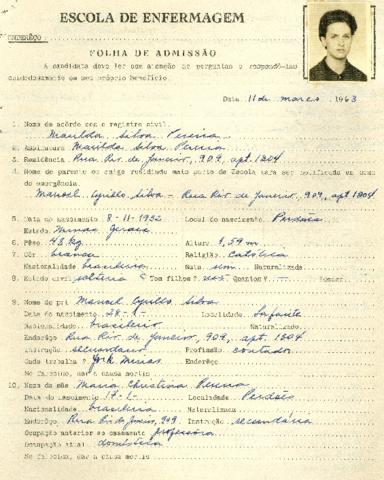 ESCOLA DE ENFERMAGEM
ENDERÊÇO
FOLHA DE ADMISSÃO
A candidata deve ler com atenção as perguntas e respondê-las
cuidadosamente em seu próprio benefício.
Data 11 de março, 1963
1. Nome de acôrdo com o registro civil.
Marilda Silva Pereira
2. Assinatura Marilda Silva Pereira
3. Residência Rua Rio de Janeiro, 909, apt. 1804
4. Nome de parente ou amigo residindo mais perto da Escola para ser notificado em caso
de emergência.
Manoel Cyrillo Silva - Rua Rio de Janeiro, 909, apt. 1804
5. Data do nascimento 8-11-1932 Local do nascimento Perdões
Estado Minas Gerais
6. Pêso 48 kg Altura 1,59 m
7. Côr branca Religião Católica
Nacionalidade brasileira Nata sim Naturalizada
8. Estado civil solteira Tem filhos? não Quantos? -
9. Nome do pai Manoel Cyrillo Silva
Data do nascimento 28-1- Localidade
Nacionalidade brasileiro Naturalizado
Enderêço Rua Rio de Janeiro, 909, apt. 1804
Instrução secundário Profissão contador
Onde trabalha? Minas Enderêço
Se falecido, dar a causa mortis
10. Nome da mãe Maria Christina Pereira
Data do nascimento 17-1- Localidade Perdões
Nacionalidade brasileira Naturalizada
Enderêço Rua Rio de Janeiro, 909 Instrução secundária
Ocupação anterior ao casamento professôra
Ocupação atual doméstica
Se falecida, dar a causa mortis